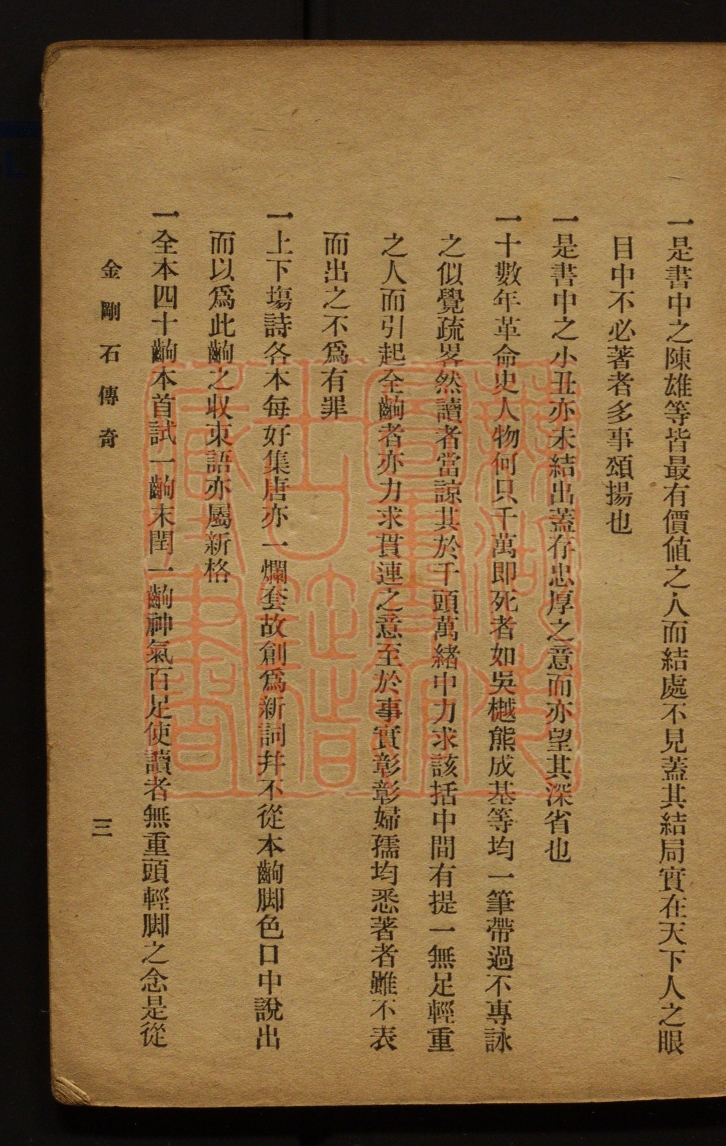 一是書中之陳雄等皆最有價値之人而結處不見蓋其結局實在天下人之眼
目中不必著者多事頌揚也
一是書中之小丑亦未結出蓋存忠厚之意而亦望其深省也
一十數年革命史人物何只千萬即死者如吳樾熊成基等均一筆帶過不專詠
之似覺疏畧然讀者當諒其於千頭萬緒中力求該括中間有提一無足輕重
之人而引起全齣者亦力求貫連之意至於事實彰彰婦孺均悉著者雖不表
而出之不爲有罪
一上下塲詩各本每好集唐亦一爛套故創爲新詞幷不從本齣脚色口中說出
而以爲此齣之収束語亦屬新格
一全本四十齣本首試一齣末閏一齣神氣百足使讀者無重頭輕脚之念是從
金剛石傳奇
三